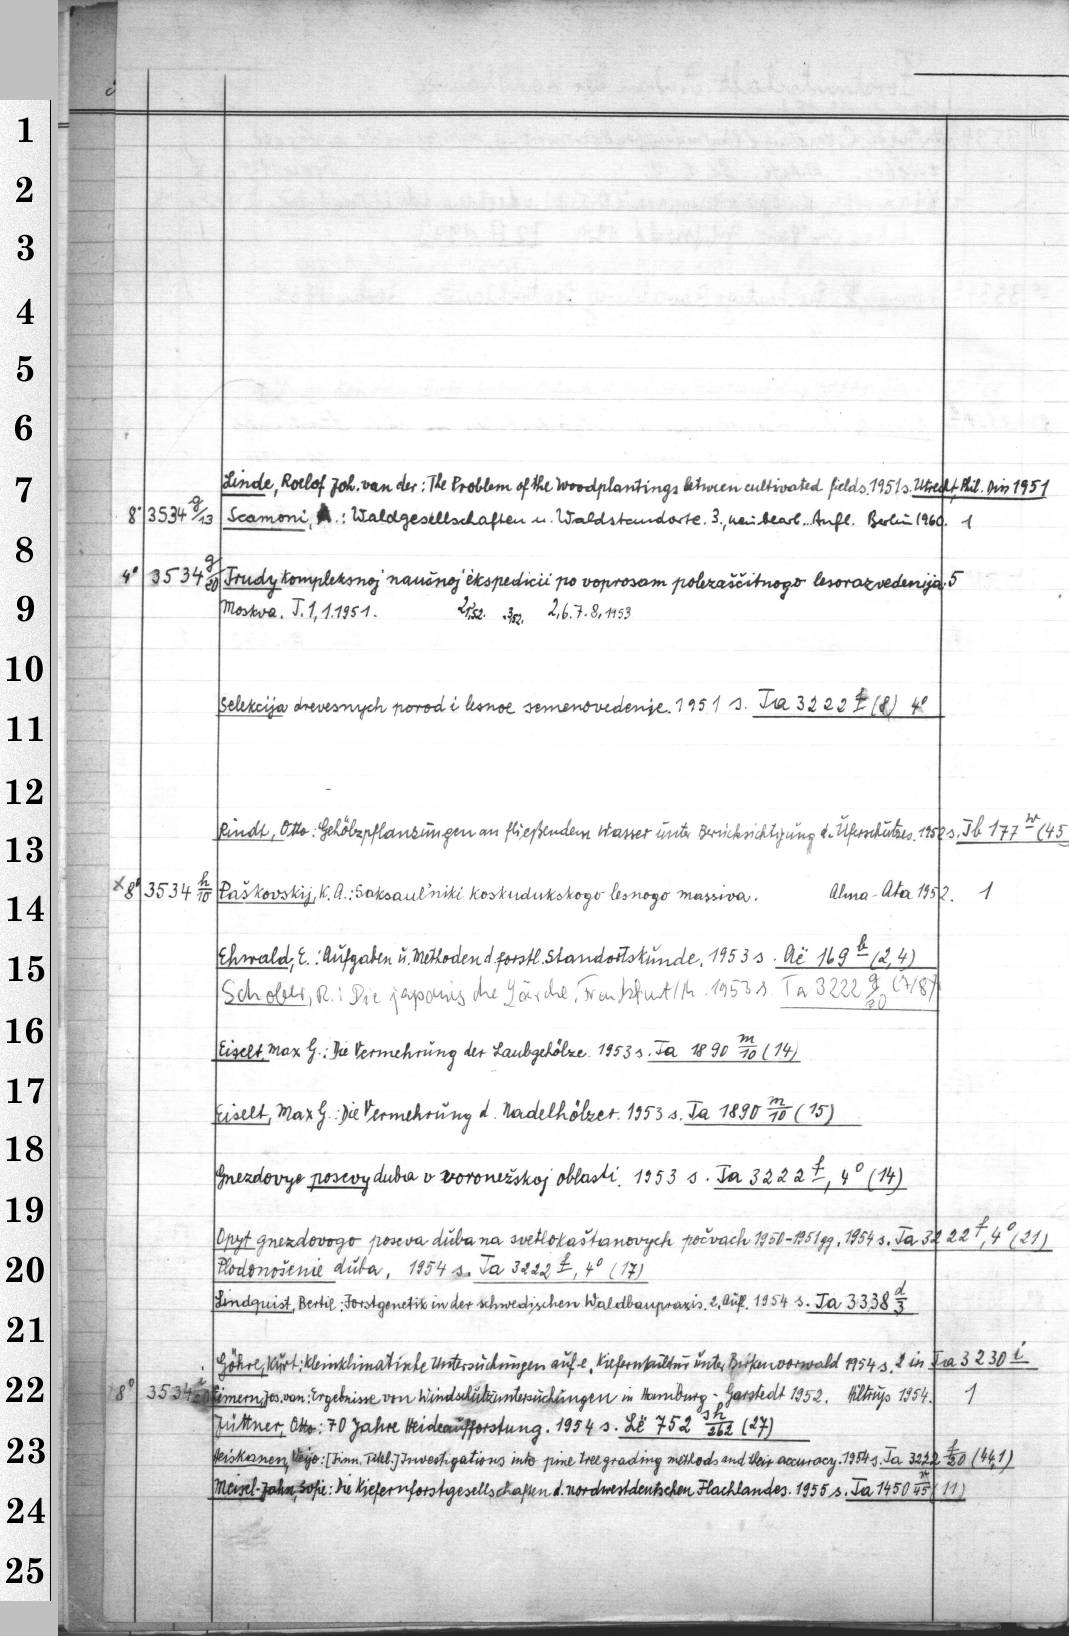 1
2
3
4
5
6
7 Linde, Roelof Joh. van der: The Problem of the woodplantings between cultivated fields. 1951 s. Utrecht, Phil. Diss 1951
8° 3534 g/13 Scamoni, A.: Waldgesellschaften u. Waldstandorte. 3., neu bearb. Aufl. Berlin 1960. 1
8
4° 3534 g/20 Trudy kompleksnoj naučnoj ėkspedicii po voprosam polezaščitnogo lesorazvedenija. 5
9 Moskva. T. 1, 1. 1951. 2,1/52. .3/52. 2,6.7.8,1953
10
Selekcija drevesnych porod i lesnoe semenovedenie. 1951 s. Ta 3222 f (8) 4°
11
12
13 Rindt, Otto: Gehölzpflanzungen an fließendem Wasser unter Berücksichtigung d. Uferschutzes. 1952 s. Tb 177 w (45
x 8° 3534 h/10 Paškovskij, K. A.: Saksaul'niki koskudukskogo lesnogo massiva. Alma-Ata 1952. 1
14
15 Ehwald, E.: Aufgaben u. Methoden d. forstl. Standortskunde. 1953 s. Aë 169 b (2,4)
Schober, R.: Die japanische Lärche, Frankfurt/M. 1953 s. Ta 3222 g/20 (7/8)
16
Eiselt, Max G.: Die Vermehrung der Laubgehölze. 1953 s. Ta 1890 m/10 (14)
17 Eiselt, Max G.: Die Vermehrung d. Nadelhölzer. 1953 s. Ta 1890 m/10 (15)
18
Gnezdovye posevy duba v voronežskoj oblasti. 1953 s. Ta 3222 f, 4° (14)
19
Opyt gnezdovogo poseva duba na svetlokaštanovych počvach 1950-1951 gg. 1954 s. Ta 3222 f, 4° (21)
20 Plodonošenie duba, 1954 s. Ta 3222 f, 4° (17)
Lindquist, Bertil: Forstgenetik in der schwedischen Waldbaupraxis. 2. Aufl. 1954 s. Ta 3338 d/3
21
Göhre, Kurt: Kleinklimatische Untersuchungen auf e. Kiefernkultur unter Birkenvorwald 1954 s. 2 in Ta 3230 i
22 8° 3534 i/20 Eimern, Jos. van: Ergebnisse von Windschutzuntersuchungen in Hamburg-Garstedt 1952. Hiltrup 1954. 1
Jüttner, Otto: 70 Jahre Heideaufforstung. 1954 s. Lë 752 sh/262 (27)
23 Heiskanen, Veijo: [Finn. Titel.] Investigations into pine tree grading methods and their accuracy. 1954 s. Ta 3222 f/20 (44,1)
Meisel-Jahn, Sofie: Die Kiefernforstgesellschaften d. nordwestdeutschen Flachlandes. 1955 s. Ta 1450 n/45 (11)
24
25